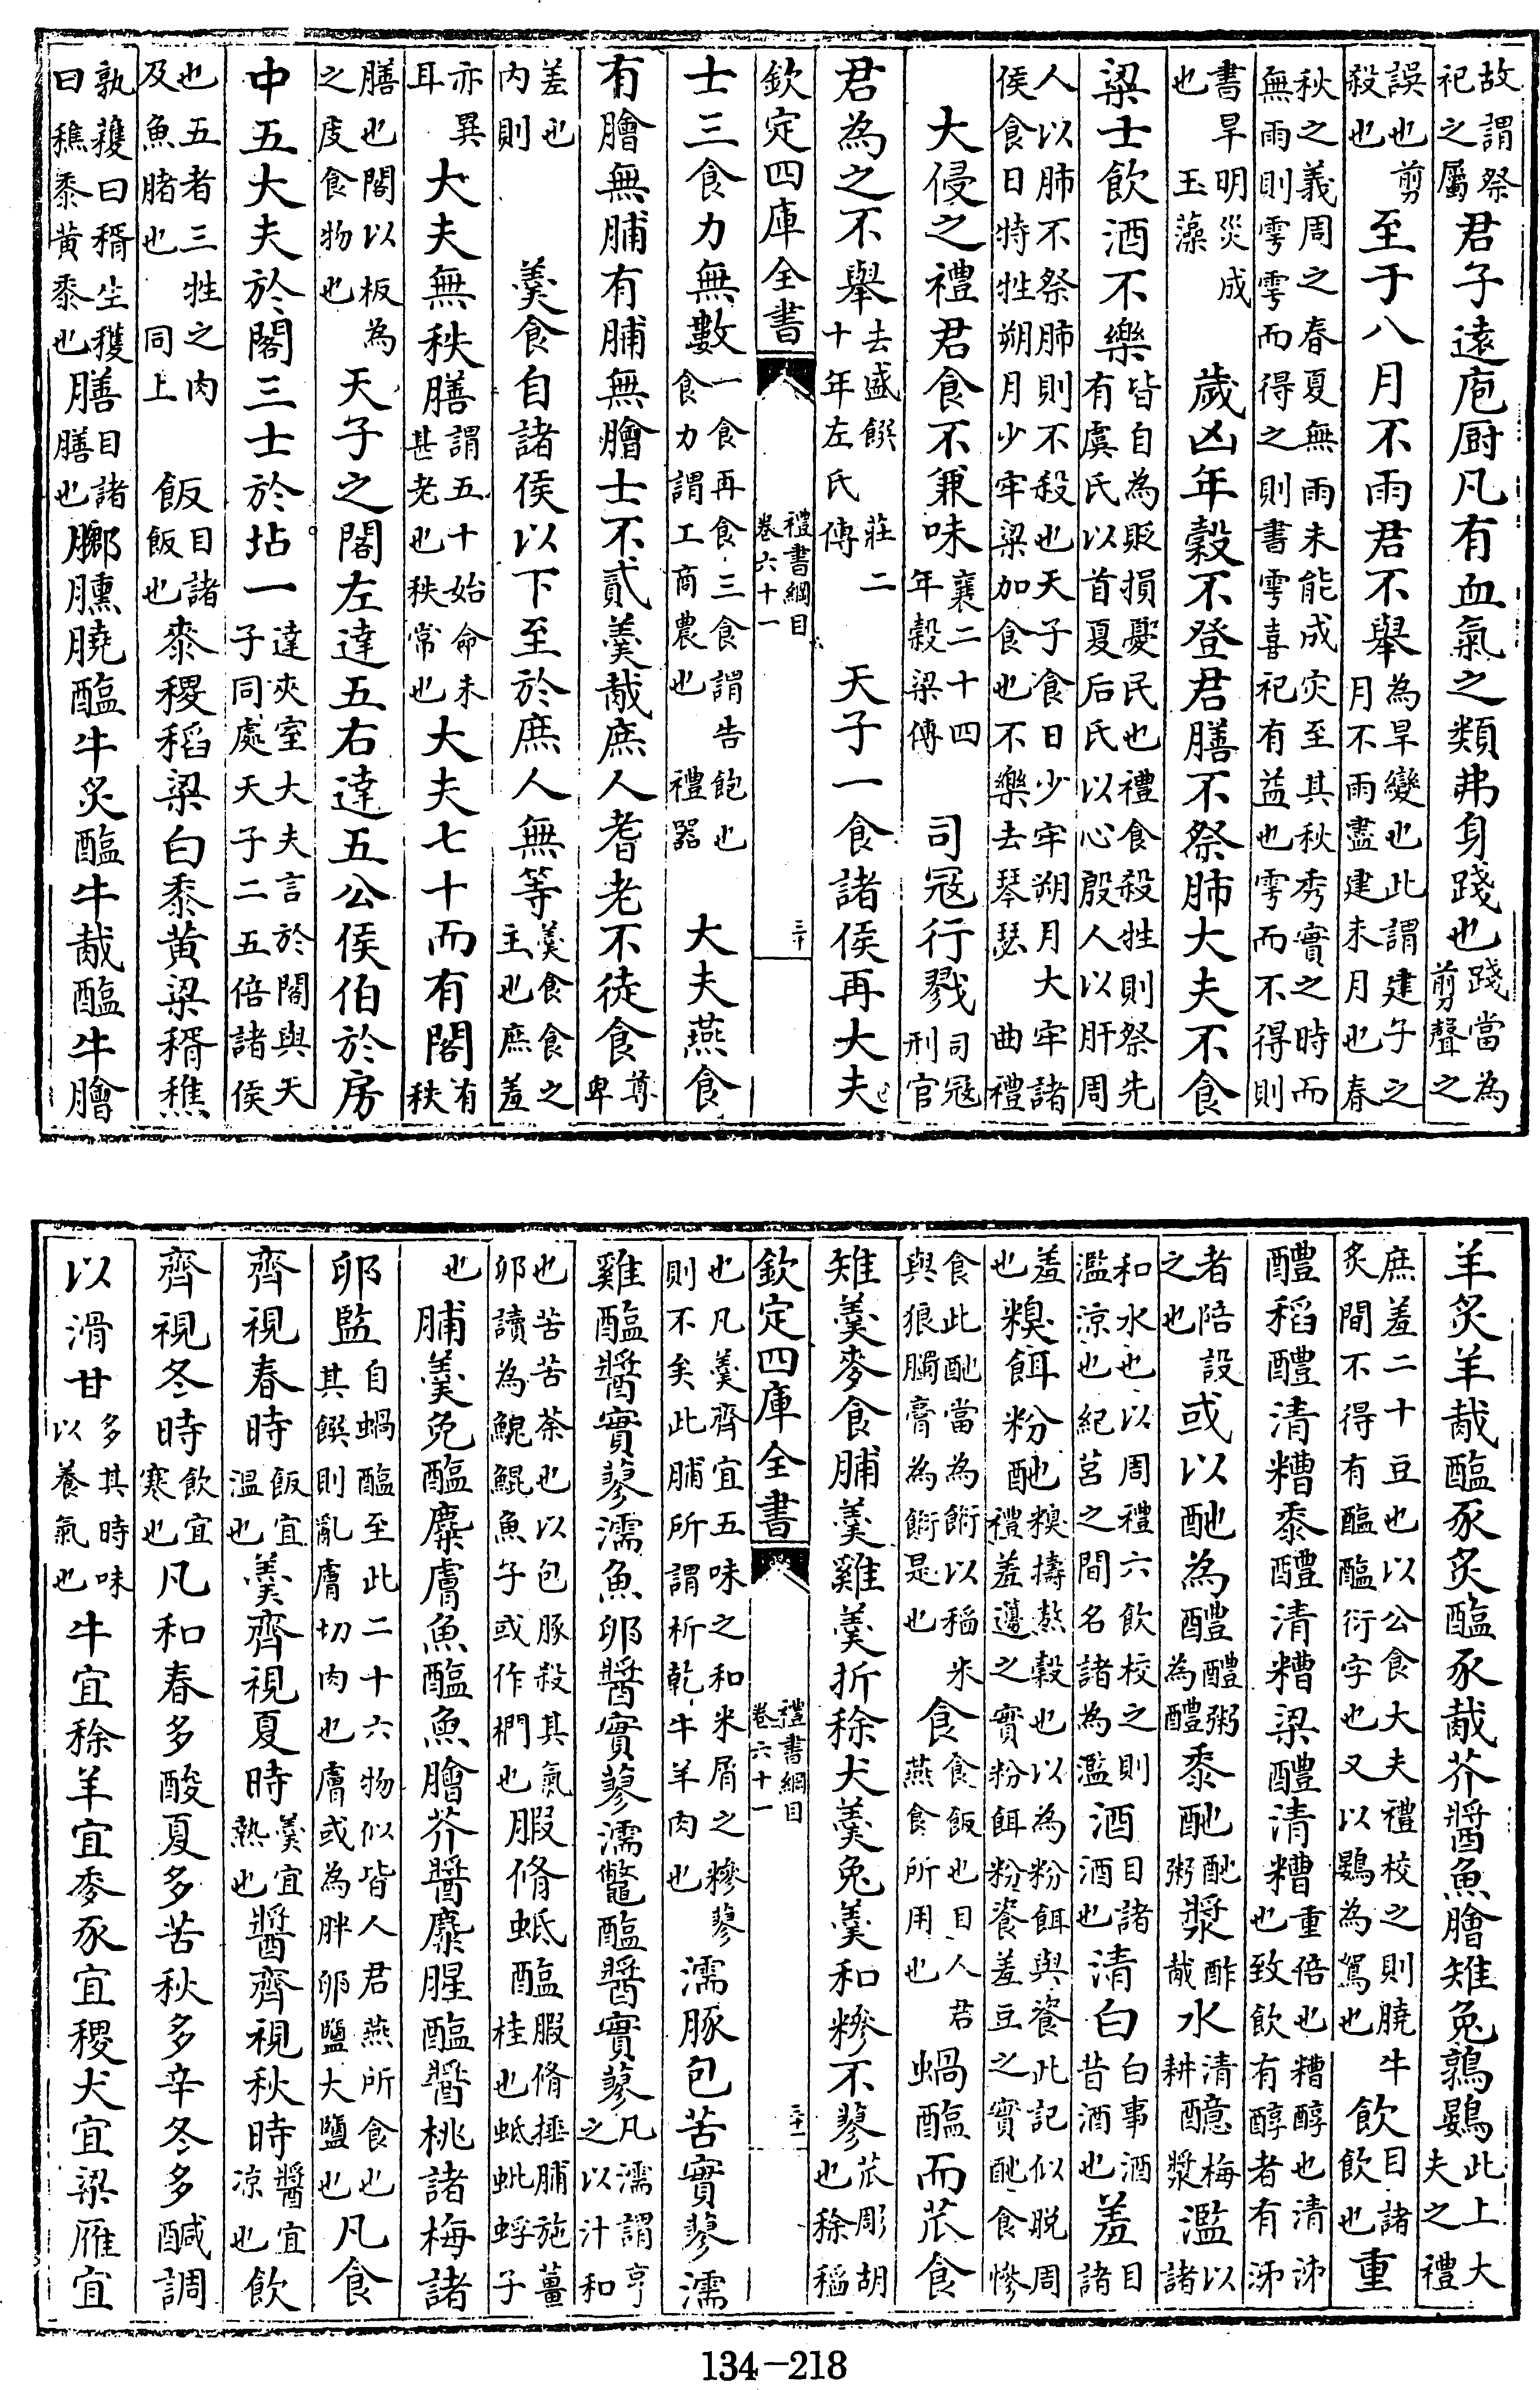 故謂祭祀之屬君子遠庖厨凡有血氣之類弗身踐也踐當為剪聲之
誤也剪殺也至于八月不雨君不舉為旱變也此謂建子之月不雨盡建未月也春
秋之義周之春夏無雨未能成灾至其秋秀實之時而無雨則雩雩而得之則書雩喜祀有益也雩而不得則
書旱明災成也玉藻歲凶年穀不登君膳不祭肺大夫不食
梁士飲酒不樂皆自為貶損憂民也禮食殺牲則祭先有虞氏以首夏后氏以心殷人以肝周
人以肺不祭肺則不殺也天子食日少牢朔月大牢諸侯食日特牲朔月少牢梁加食也不樂去琴瑟曲禮
大侵之禮君食不兼味襄二十四年穀梁傳司冦行戮司冦刑官
君為之不舉去盛饌莊二十年左氏傳天子一食諸侯再大夫
欽定四庫全書 禮書綱目卷六十一 三十
士三食力無數一食再食三食謂告飽也食力謂工商農也禮器大夫燕食
有膾無脯有脯無膾士不貳羮胾庶人耆老不徒食尊卑
差也內則羮食自諸侯以下至於庶人無等羮食食之主也庶羞
亦異耳大夫無秩膳謂五十始命未甚老也秩常也大夫七十而有閣有秩
膳也閣以板為之庋食物也天子之閣左達五右達五公侯伯於房
中五大夫於閣三士於坫一達夾室大夫言於閣與天子同處天子二五倍諸侯
也五者三牲之肉及魚腊也同上飯目諸飯也黍稷稻梁白黍黄梁稰穛
孰穫曰稰生穫曰穛黍黄黍也膳目諸膳也膷臐膮醢牛炙醢牛胾醢牛膾
羊炙羊胾醢豕炙醢豕胾芥醬魚膾雉兔鶉鷃此上大夫之禮
庶羞二十豆也以公食大夫禮校之則膮牛炙間不得有醢醢衍字也又以鷃為鴽也飲目諸飲也重
醴稻醴清糟黍醴清糟梁醴清糟重倍也糟醇也清泲也致飲有醇者有泲
者陪設之也或以酏為醴醴粥為醴黍酏酏粥漿酢胾水清耕醷梅漿濫以諸
和水也以周禮六飲校之則濫涼也紀莒之間名諸為濫酒目諸酒也清白白事酒昔酒也羞目諸
羞也糗餌粉酏糗擣熬穀也以為粉餌與餈此記似脱周禮羞籩之實粉餌粉餈羞豆之實酏食慘
食此酏當為餰以稻米與狼臅膏為餰是也食食飯也目人君燕食所用也蝸醢而苽食
雉羮麥食脯羮雞羮折稌犬羮兔羮和糝不蓼苽彫胡也稌稻
欽定四庫全書 禮書綱目卷六十一 三十一
也凡羮齊宜五味之和米屑之糝蓼則不矣此脯所謂析乾牛羊肉也濡豚包苦實蓼濡
雞醢醬實蓼濡魚卵醬實蓼濡鼈醢醬實蓼凡濡謂亨之以汁和
也苦苦荼也以包豚殺其氣卵讀為鯤鯤魚子或作㨺也腶脩蚳醢腶脩捶脯施薑桂也蚳蚍蜉子
也脯羮兔醢麋膚魚醢魚膾芥醬麋腥醢醬桃諸梅諸
卵鹽自蝸醢至此二十六物似皆人君燕所食也其饌則亂膚切肉也膚或為胖卵鹽大鹽也凡食
齊視春時飯宜温也羮齊視夏時羮宜熱也醬齊視秋時醬宜涼也飲
齊視冬時飲宜寒也凡和春多酸夏多苦秋多辛冬多鹹調
以滑甘多其時味以養氣也牛宜稌羊宜黍豕宜稷犬宜梁雁宜
134-218